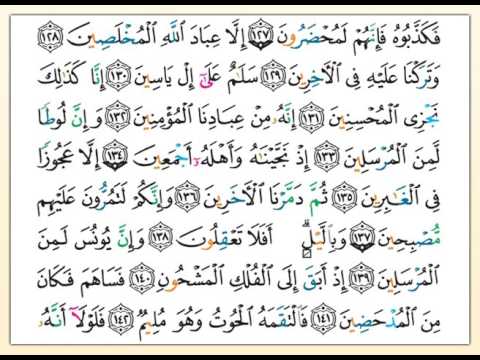 فَكَذَّبُوهُ فَإِنَّهُمْ لَمُحْضَرُونَ ١٢٧ إِلَّا عِبَادَ ٱللَّهِ ٱلْمُخْلَصِينَ ١٢٨
وَتَرَكْنَا عَلَيْهِ فِى ٱلْءَاخِرِينَ ١٢٩ سَلَٰمٌ عَلَىٰٓ إِلْ يَاسِينَ ١٣٠ إِنَّا كَذَٰلِكَ
نَجْزِى ٱلْمُحْسِنِينَ ١٣١ إِنَّهُۥ مِنْ عِبَادِنَا ٱلْمُؤْمِنِينَ ١٣٢ وَإِنَّ لُوطًا
لَّمِنَ ٱلْمُرْسَلِينَ ١٣٣ إِذْ نَجَّيْنَٰهُ وَأَهْلَهُۥٓ أَجْمَعِينَ ١٣٤ إِلَّا عَجُوزًا
فِى ٱلْغَٰبِرِينَ ١٣٥ ثُمَّ دَمَّرْنَا ٱلْءَاخَرِينَ ١٣٦ وَإِنَّكُمْ لَتَمُرُّونَ عَلَيْهِم
مُّصْبِحِينَ ١٣٧ وَبِٱلَّيْلِ ۗ أَفَلَا تَعْقِلُونَ ١٣٨ وَإِنَّ يُونُسَ لَمِنَ
ٱلْمُرْسَلِينَ ١٣٩ إِذْ أَبَقَ إِلَى ٱلْفُلْكِ ٱلْمَشْحُونِ ١٤٠ فَسَاهَمَ فَكَانَ
مِنَ ٱلْمُدْحَضِينَ ١٤١ فَٱلْتَقَمَهُ ٱلْحُوتُ وَهُوَ مُلِيمٌ ١٤٢ فَلَوْلَآ أَنَّهُۥ